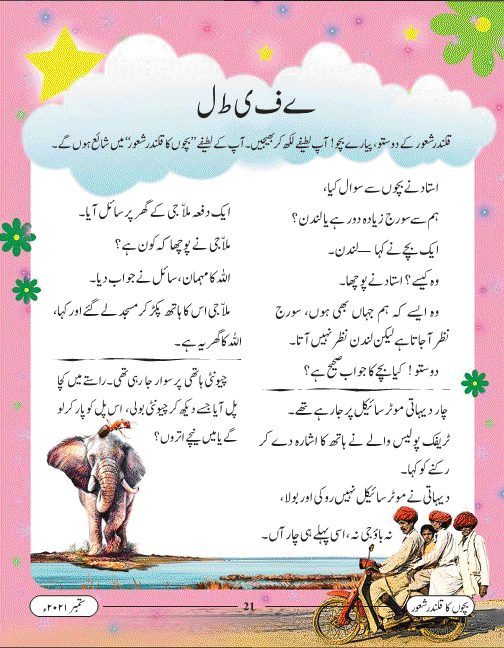 ل ط ی ف ے
قلندر شعور کے دوستو، پیارے بچو! آپ لطیفے لکھ کر بھیجیں۔ آپ کے لطیفے ”بچوں کا قلندر شعور“ میں شائع ہوں گے۔
استاد نے بچوں سے سوال کیا،
ہم سے سورج زیادہ دور ہے یا لندن؟
ایک بچے نے کہا — لندن۔
وہ کیسے؟ استاد نے پوچھا۔
وہ ایسے کہ ہم جہاں بھی ہوں، سورج
نظر آجاتا ہے لیکن لندن نظر نہیں آتا۔
دوستو! کیا بچے کا جواب صحیح ہے؟
چار دیہاتی موٹر سائیکل پر جارہے تھے۔
ٹریفک پولیس والے نے ہاتھ کا اشارہ دے کر
رکنے کو کہا۔
دیہاتی نے موٹر سائیکل نہیں روکی اور بولا،
نہ باؤ جی نہ، اسی پہلے ہی چار آں۔
ایک دفعہ ملاّ جی کے گھر پر سائل آیا۔
ملاّ جی نے پوچھا کہ کون ہے؟
اللہ کا مہمان، سائل نے جواب دیا۔
ملاّ جی اس کا ہاتھ پکڑ کر مسجد لے گئے اور کہا،
اللہ کا گھر یہ ہے۔
چیونٹی ہاتھی پر سوار جارہی تھی۔ راستے میں کچا
پل آیا جسے دیکھ کر چیونٹی بولی، اس پل کو پار کرلو
گے یا میں نیچے اتروں؟
بچوں کا قلندر شعور
21
ستمبر ۲۰۲۱ء